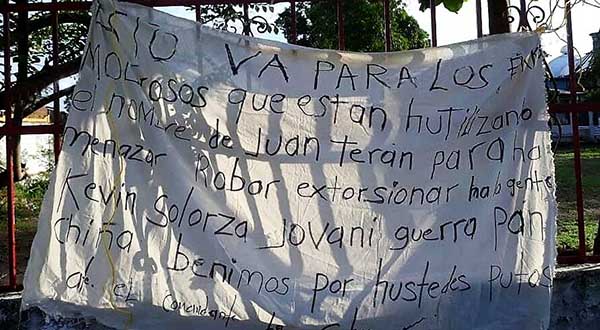 ESTO VA PARA LOS
MOGROSOS que estan hutilizano
el nombre de Juan teran para ha
menazar Robar extorsionar ha la gente
Kevin Solorza Jovani guerra Pan
chiña benimos por hustedes putos
a.t. el comandante